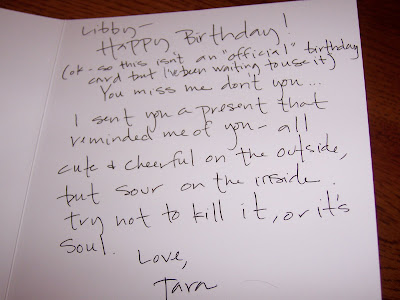 Libby-
Happy Birthday!
(ok - so this isn't an "official" birthday
card but I've been waiting to use it)
You miss me don't you...
I sent you a present that
reminded me of you - all
cute & cheerful on the outside,
but sour on the inside.
try not to kill it, or it's
soul.
Love,
Tara